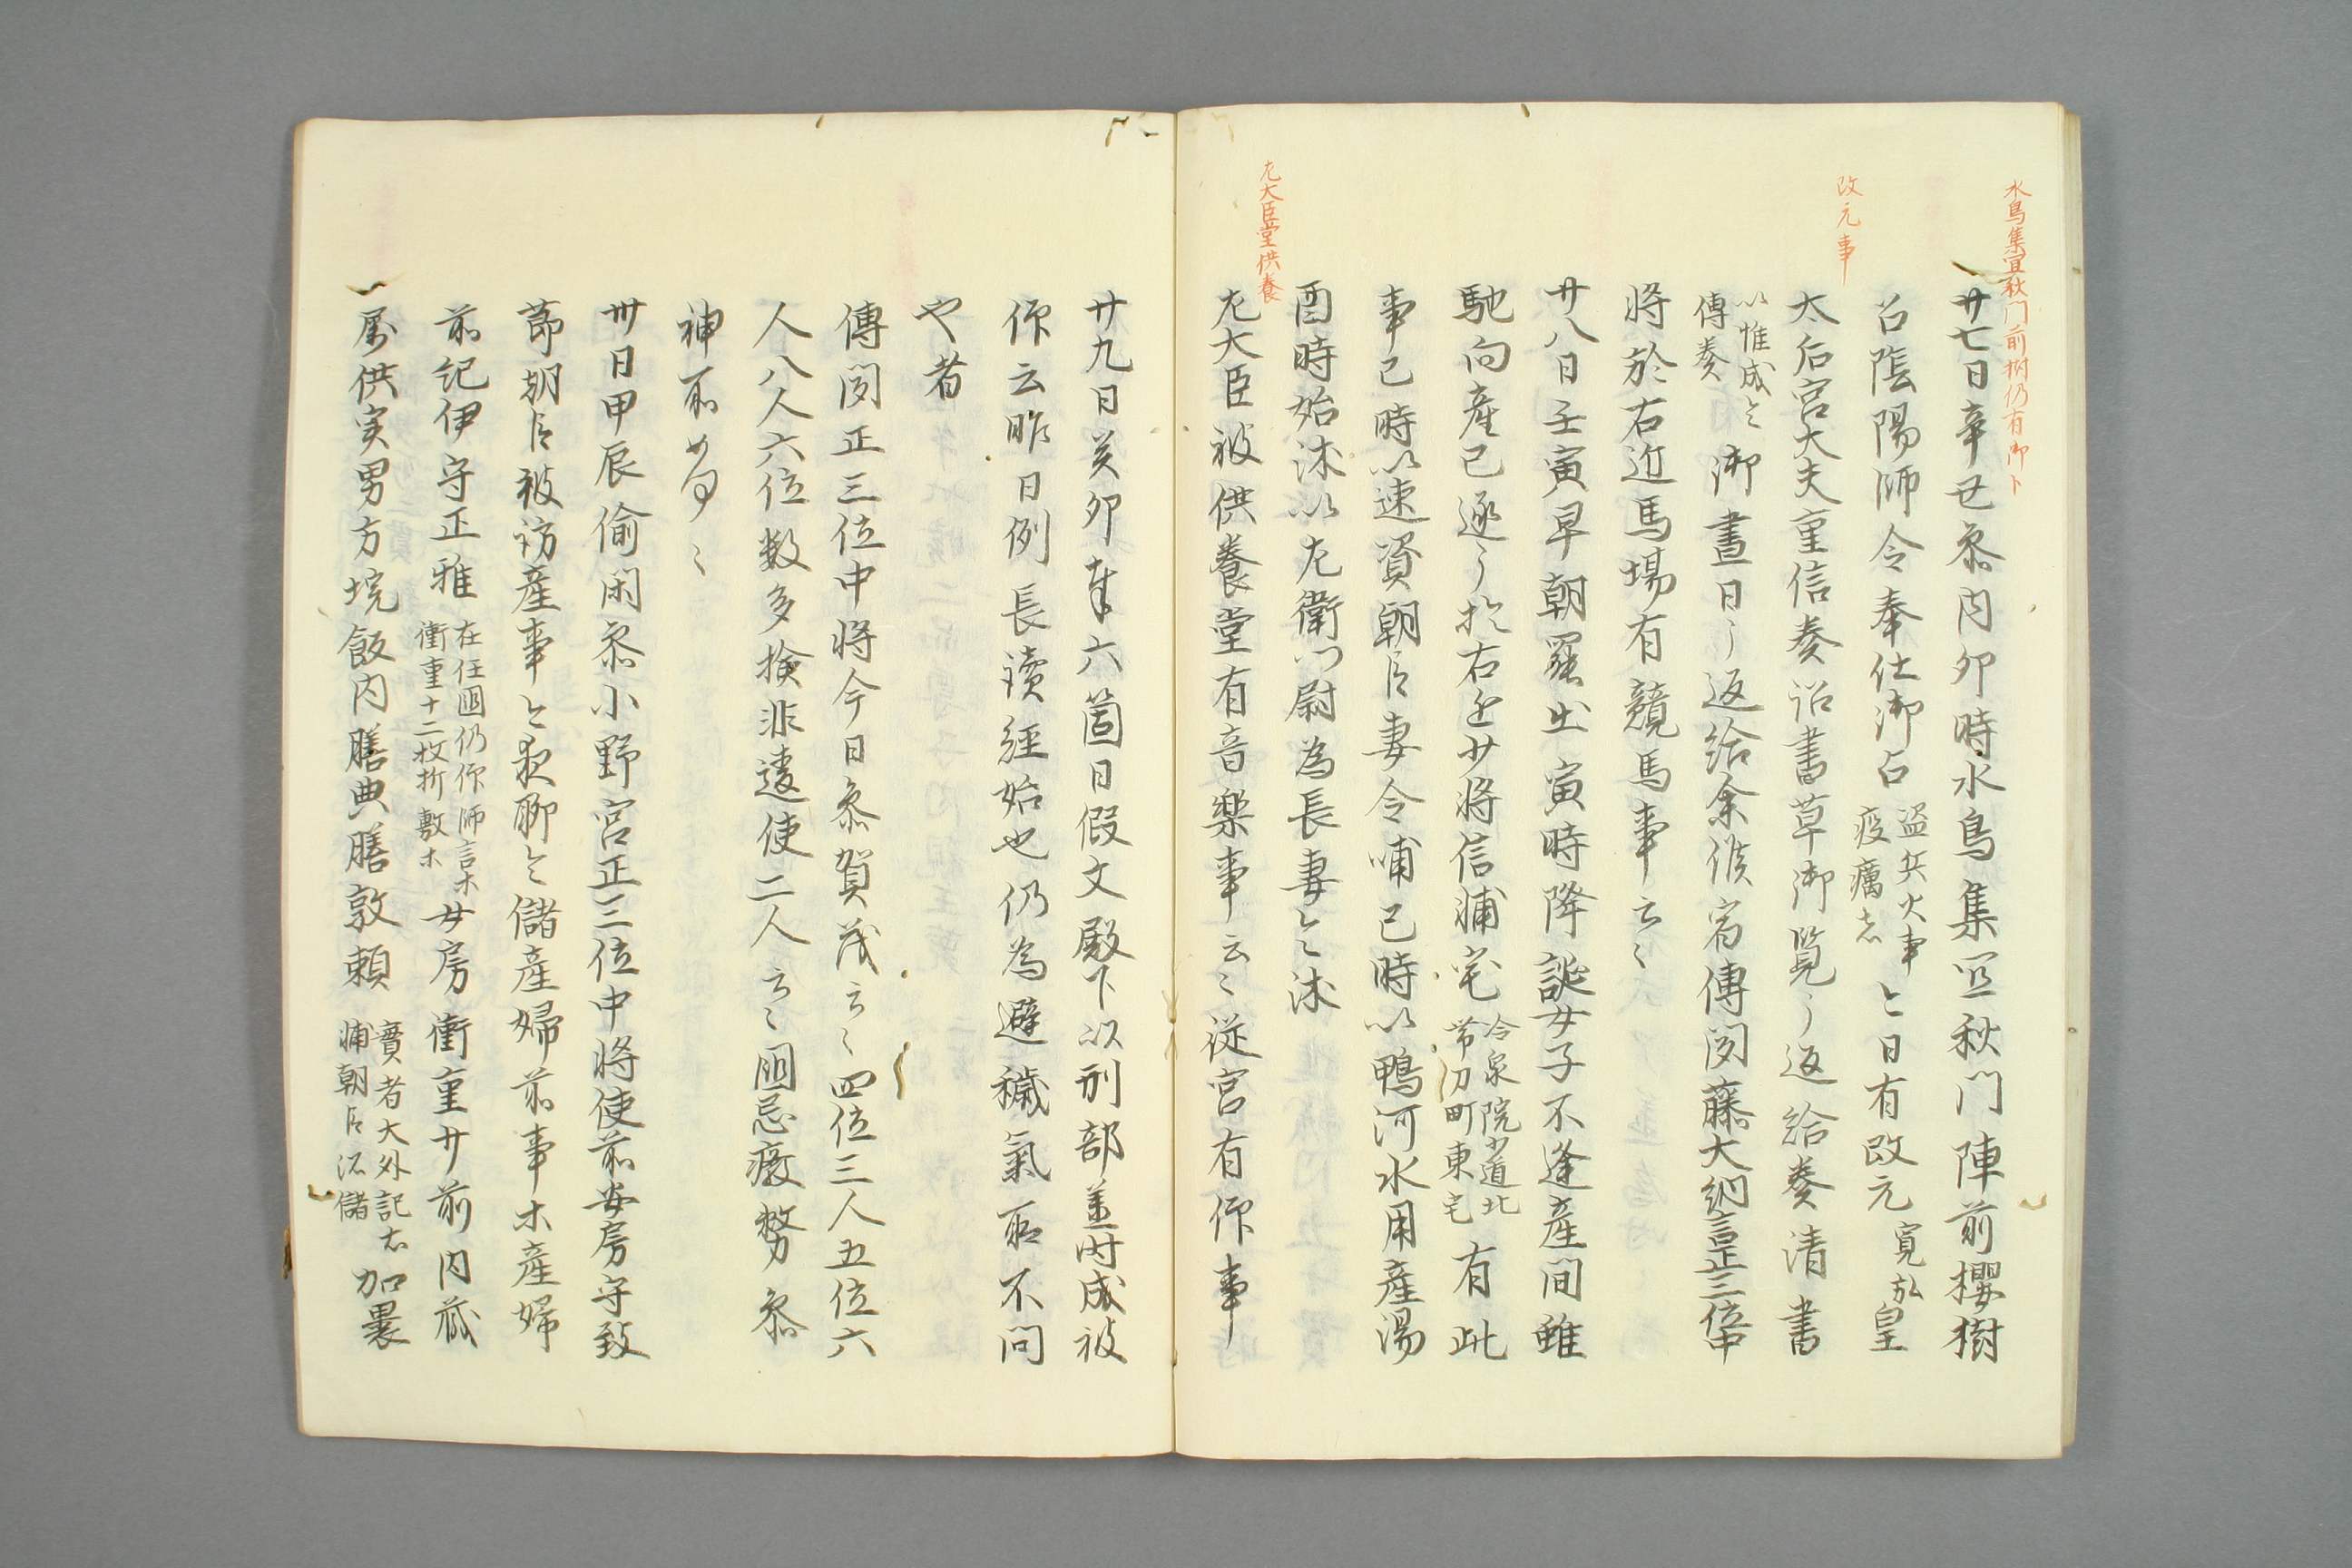 水鳥集宜秋門前樹仍有御卜
改元事
左大臣堂供養
廿七日辛丑参内卯時水鳥集宜秋門陣前櫻樹
召陰陽師令奉仕御占
盗兵火事
疫癘者
今日有改元
寛弘
皇
太后宮大夫重信奏詔書草御覧了返給奏清書
以惟成令
傳奏
御畫日了返給余候宿傳聞藤大納言正三位中
将於右近馬場有競馬事云々
廿八日壬寅早朝罷出寅時降誕女子不逢産間雖
馳向産已遂了於右近少将信輔宅
冷泉院少道北
帯刀町東宅
有此
事巳時以遠資朝臣妻令哺巳時以鴨河水用産湯
酉時始沐以左衛門尉為長妻令沐
左大臣被供養堂有音楽事云々従宮有仰事
廿九日癸卯奉六箇日假文殿下以刑部丞時成被
仰云昨日例長讀經始也仍為避穢氣所不問
也者
傳聞正三位中将今日参賀茂云々四位三人五位六
人八人六位数多検非違使二人云々國忌癈務参
神所如何々
卅日甲辰偷閑参小野宮正三位中将使前安房守致
節朝臣被訪産事今夜聊令儲産婦前事木産婦
前紀伊守正雅
在任國仍仰師言木
衝重十二枚折敷木
女房衝重廿前内蔵
属供実男方垸飯内膳典膳敦頼
賓者大外記志
輔朝臣so儲
加裹